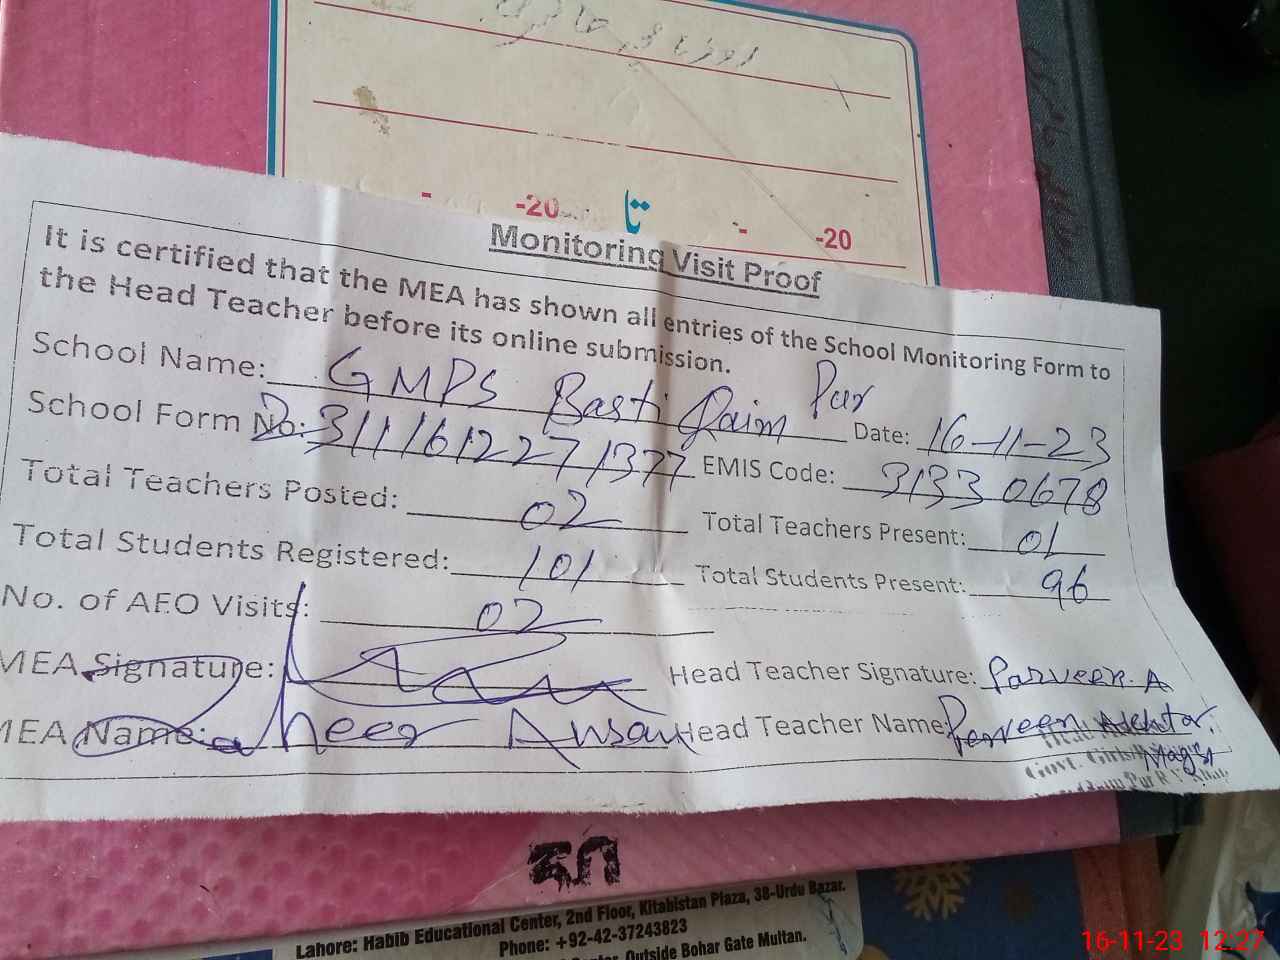 -20 تا - -20
Monitoring Visit Proof
It is certified that the MEA has shown all entries of the School Monitoring Form to
the Head Teacher before its online submission.
School Name: GMPS Basti Qaim Pur Date: 16-11-23
School Form No: 3111612271377 EMIS Code: 31330678
Total Teachers Posted: 02 Total Teachers Present: 01
Total Students Registered: 101 Total Students Present: 96
No. of AEO Visits: 02
MEA Signature: Head Teacher Signature: Parveen. A
MEA Name: Zaheer Ansari Head Teacher Name: Perveen Akhtar
Govt. Girls
Lahore: Habib Educational Center, 2nd Floor, Kitabistan Plaza, 38-Urdu Bazar.
Phone: +92-42-37243823
Outside Bohar Gate Multan.
16-11-23 12:27